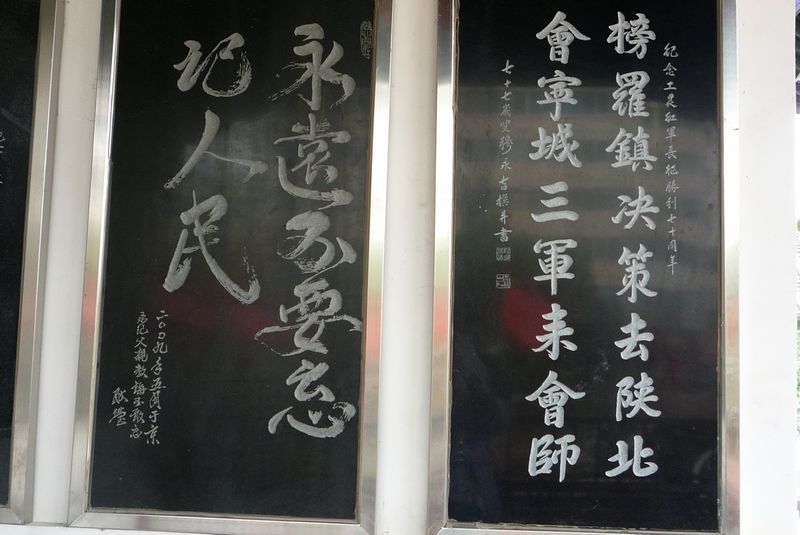 紀念工农红軍長征勝利七十周年
榜羅鎮决策去陕北
會寧城三軍来會師
七十七歲叟穆永吉撰并書
永遠不要忘
记人民
二〇〇九年五月于京
永记父親教誨不敢忘
耿莹